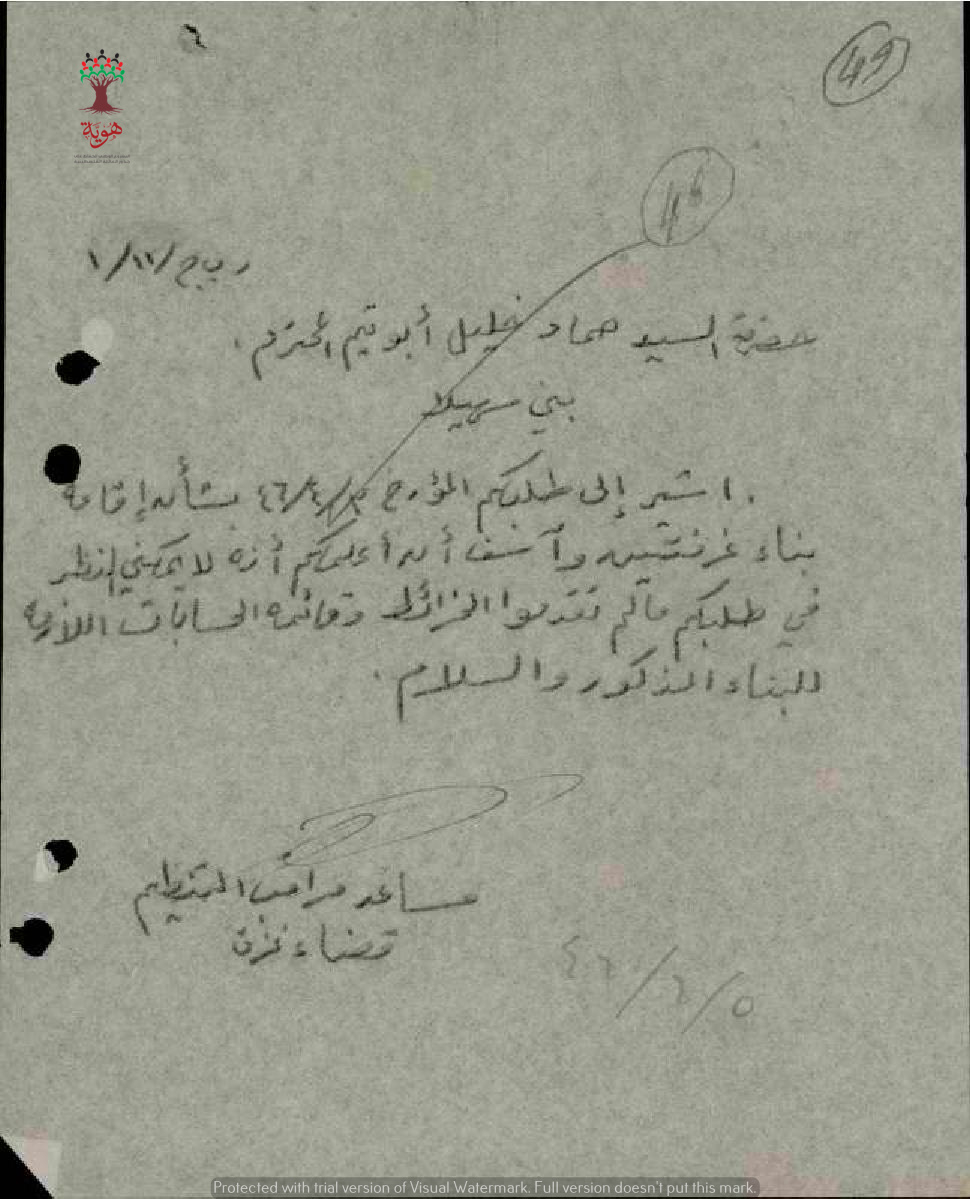 49
46
هوية
ر ب ج /١٧/١
حضرة السيد حماد خليل أبو تيم المحترم .
بني سهيلا
. اشير إلى طلبكم المؤرخ /٤/٤٦ بشأن إقامة
بناء غرفتين وآسف أن أعلمكم أنه لا يمكنني النظر
في طلبكم مالم تقدموا الخرائط وقائمة الحسابات اللازمة
للبناء المذكور والسلام .
مساعد مراقب التنظيم
قضاء غزة
٤٦/٦/٥
Protected with trial version of Visual Watermark. Full version doesn't put this mark.